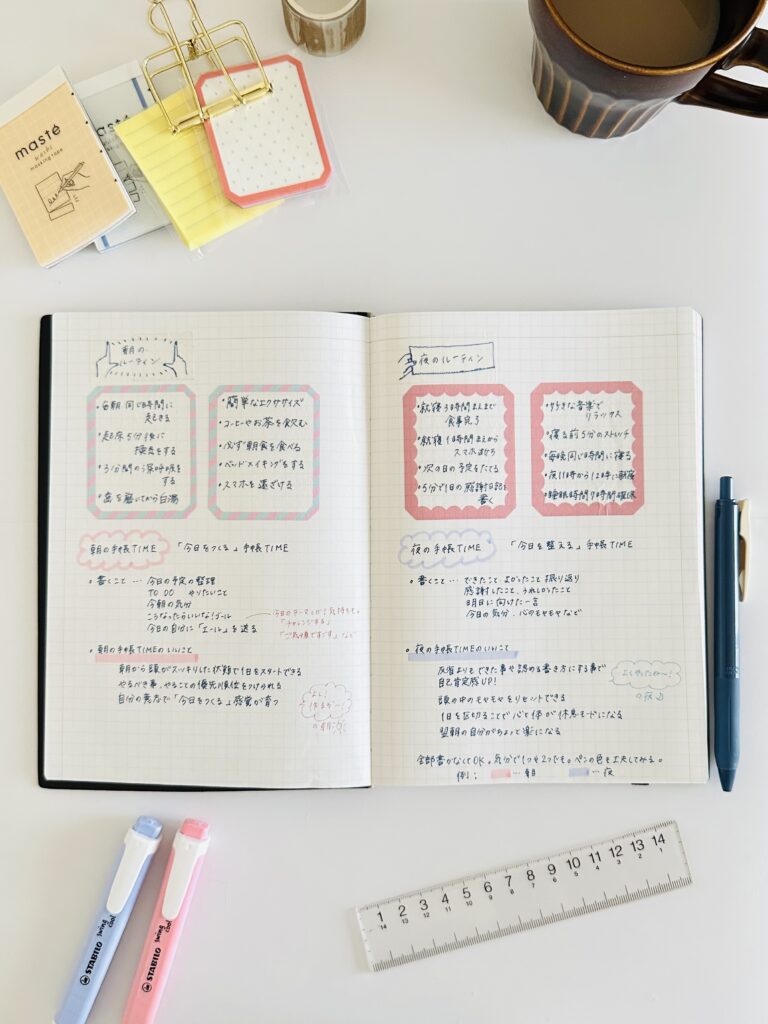 masté
washi
masking tape
asté
朝の
ルーティン
・毎朝同じ時間に
起きる
・起床5分後に
検温をする
・3分間の深呼吸を
する
・歯を磨いてから白湯
・簡単なエクササイズ
・コーヒーやお茶を飲む
・必ず朝食を食べる
・ベッドメイキングをする
・スマホを遠ざける
朝の手帳TIME 「今日をつくる」手帳TIME
・書くこと… 今日の予定の整理
TO DO やりたいこと
今朝の気分
こうなったらいいな!ゴール
今日の自分に「エール」を送る
今日のテーマとか♪気持ちも。
「チャレンジする」
「ご気嫌ですごす」など
・朝の手帳TIMEのいいこと
朝から頭がスッキリした状態で1日をスタートできる
やるべき事、やることの優先順位をつけられる
自分の意志で「今日をつくる」感覚が育つ
よし!
の朝
夜のルーティン
・就寝3時間まえまで
食事完了
・就寝1時間まえから
スマホ断ち
・次の日の予定をたてる
・5分で1日の感謝日記を
書く
・好きな音楽で
リラックス
・寝る前5分のストレッチ
・毎晩同じ時間に寝る
・夜11時から12時に就寝
・睡眠時間7時間確保
夜の手帳TIME 「今日を整える」手帳TIME
・書くこと… できたこと・よかったこと 振り返り
感謝したこと、うれしかったこと
明日に向けた一言
今日の気分・心のモヤモヤなど
・夜の手帳TIMEのいいこと
反省よりもできた事や認める書き方にする事で
自己肯定感UP!
頭の中のモヤモヤをリセットできる
1日を区切ることで心と体が休息モードになる
翌朝の自分がちょっと楽になる
よくやったね〜!
の夜
全部書かなくてOK。気分で1つでも2つでも。ペンの色も工夫してみる。
例: …朝 …夜
STABILO swing cool
STABILO swing cool
1 2 3 4 5 6 7 8 9 10 11 12 13 14
14 13 12 11 10 9 8 7 6 5 4 3 2 1